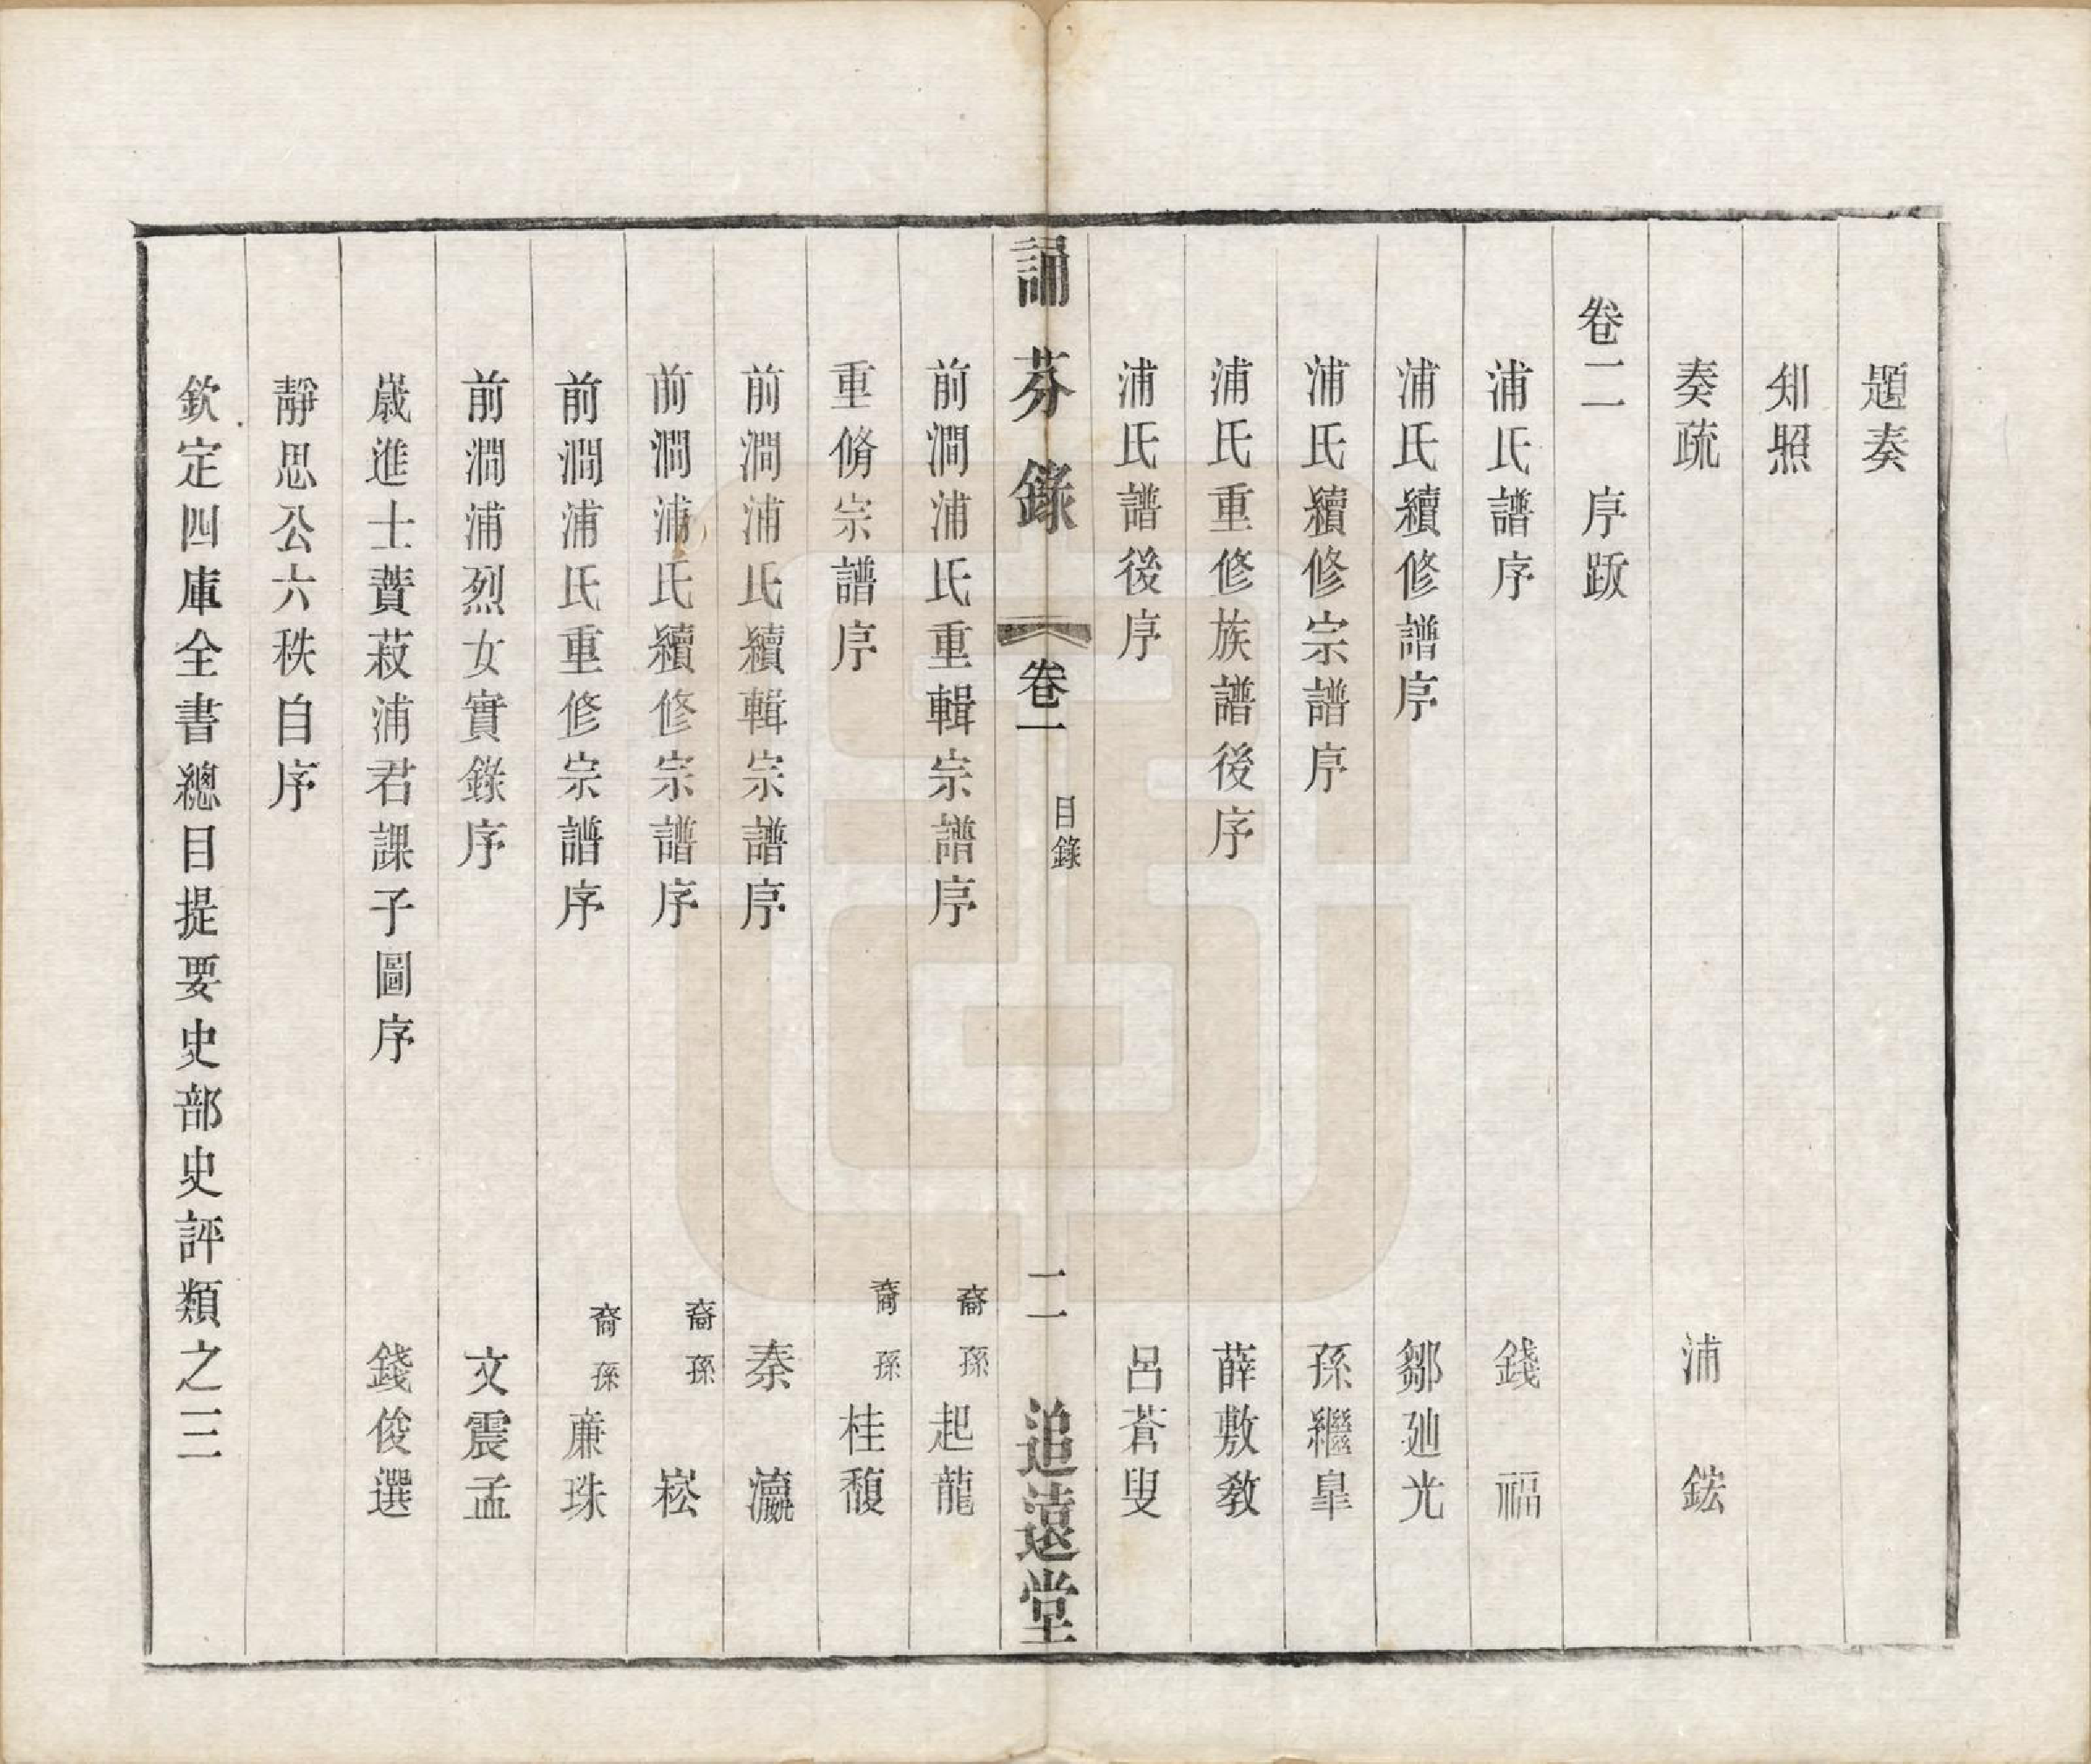 題奏
知照
奏疏 浦鋐
卷二 序跋
浦氏譜序 錢福
浦氏續修譜序 鄒廸光
浦氏續修宗譜序 孫繼皐
浦氏重修族譜後序 薛敷敎
浦氏譜後序 呂蒼叟
誦芬錄 卷一 目錄 二 追遠堂
前澗浦氏重輯宗譜序 裔孫起龍
重脩宗譜序 裔孫桂馥
前澗浦氏續輯宗譜序 秦瀛
前澗浦氏續修宗譜序 裔孫崧
前澗浦氏重修宗譜序 裔孫亷珠
前澗浦烈女實錄序 文震孟
嵗進士蕡菽浦君課子圖序 錢俊選
靜思公六秩自序
欽定四庫全書總目提要史部史評類之三